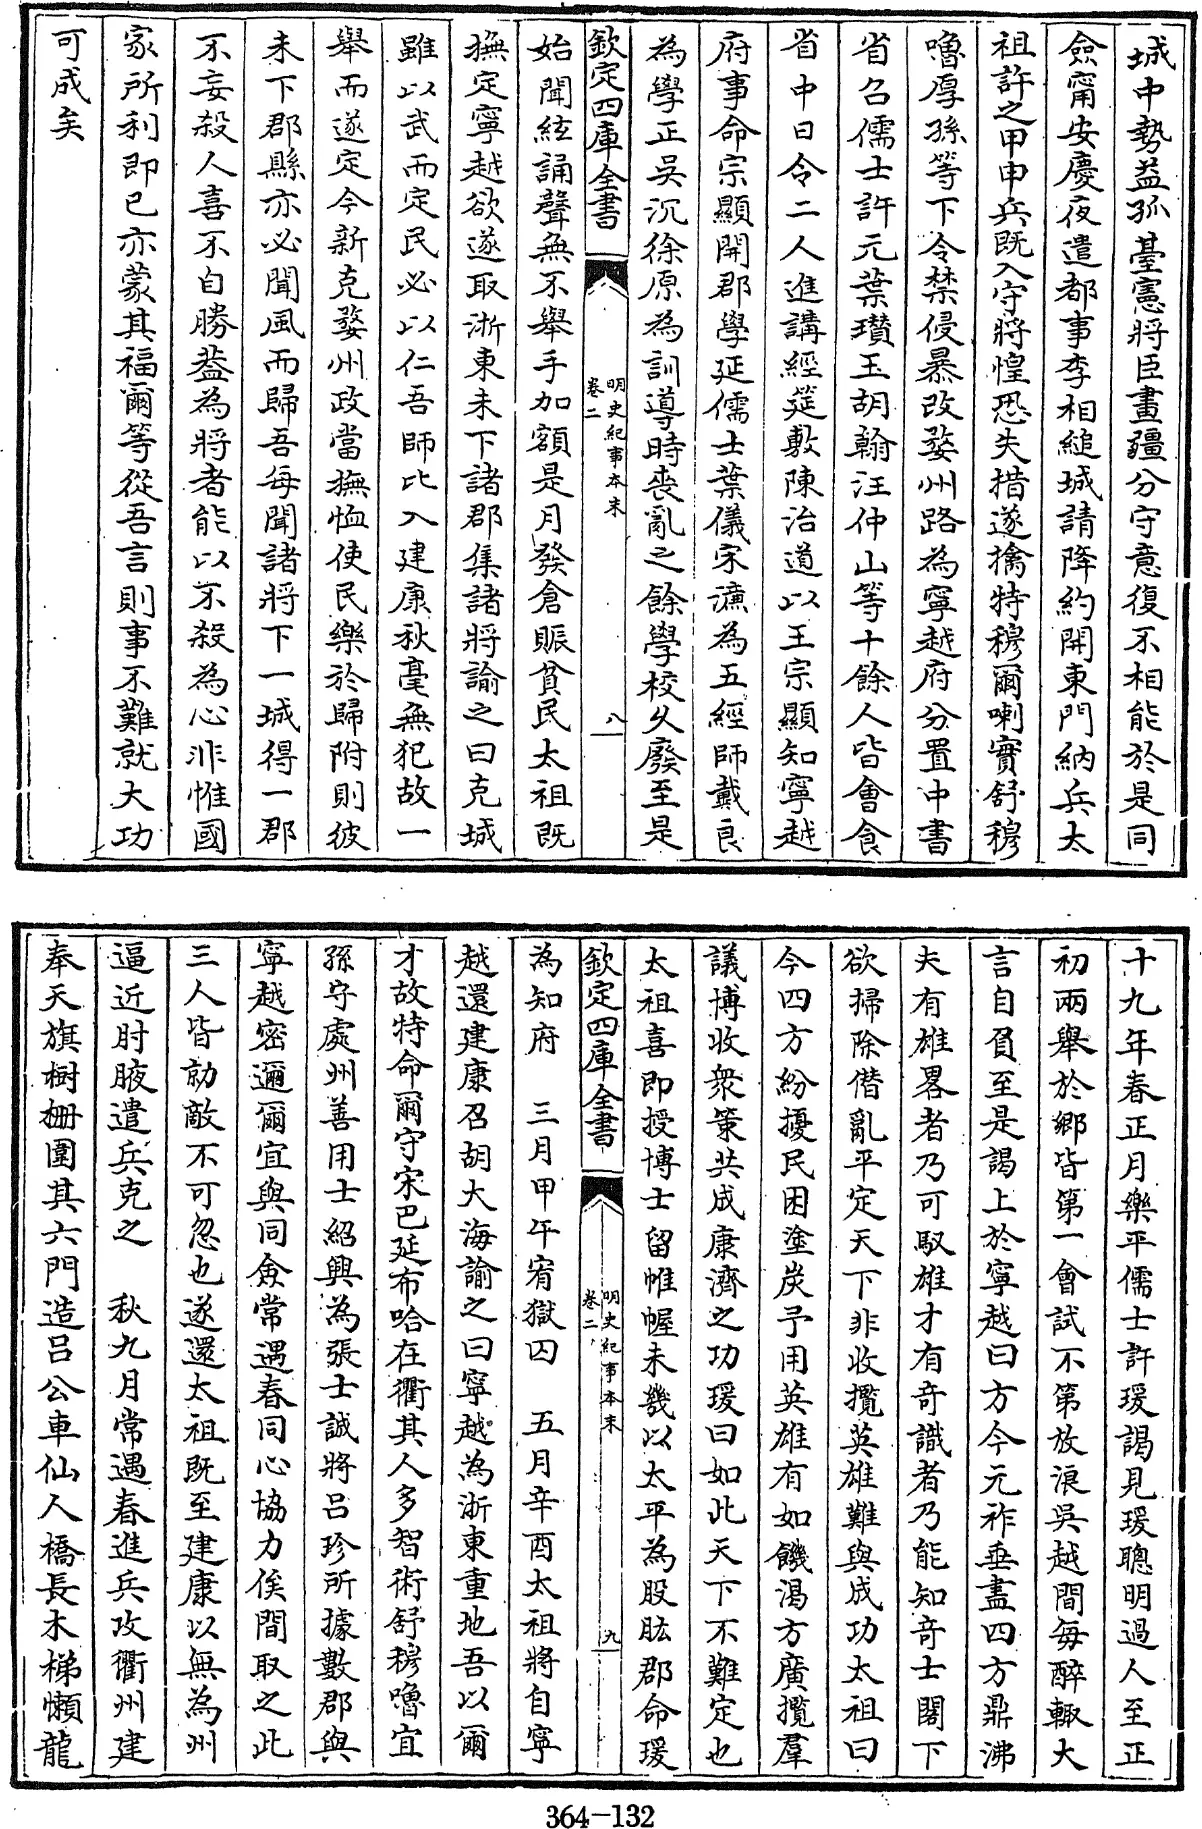 城中勢益孤臺憲將臣畫疆分守意復不相能於是同
僉甯安慶夜遣都事李相縋城請降約開東門納兵太
祖許之甲申兵既入守將惶恐失措遂擒特穆爾喇實舒穆
嚕厚孫等下令禁侵暴改婺州路為寧越府分置中書
省召儒士許元葉瓚玉胡翰汪仲山等十餘人皆會食
省中日令二人進講經筵敷陳治道以王宗顯知寧越
府事命宗顯開郡學延儒士葉儀宋濂為五經師戴良
為學正吳沉徐原為訓導時喪亂之餘學校久廢至是
欽定四庫全書
明史紀事本末
卷二
八
始聞絃誦聲無不舉手加額是月發倉賑貧民太祖既
撫定寧越欲遂取浙東未下諸郡集諸將諭之曰克城
雖以武而定民必以仁吾師比入建康秋毫無犯故一
舉而遂定今新克婺州政當撫恤使民樂於歸附則彼
未下郡縣亦必聞風而歸吾每聞諸將下一城得一郡
不妄殺人喜不自勝葢為將者能以不殺為心非惟國
家所利即已亦蒙其福爾等從吾言則事不難就大功
可成矣
十九年春正月樂平儒士許瑗謁見瑗聰明過人至正
初兩舉於鄉皆第一會試不第放浪吳越間每醉輒大
言自負至是謁上於寧越曰方今元祚垂盡四方鼎沸
夫有雄畧者乃可馭雄才有奇識者乃能知奇士閣下
欲掃除僭亂平定天下非收攬英雄難與成功太祖曰
今四方紛擾民困塗炭予用英雄有如饑渴方廣攬羣
議博收衆策共成康濟之功瑗曰如此天下不難定也
太祖喜即授博士留帷幄未幾以太平為股肱郡命瑗
欽定四庫全書
明史紀事本末
卷二
九
為知府　三月甲午宥獄囚　五月辛酉太祖將自寧
越還建康召胡大海諭之曰寧越為浙東重地吾以爾
才故特命爾守宋巴延布哈在衢其人多智術舒穆嚕宜
孫守處州善用士紹興為張士誠將呂珍所據數郡與
寧越密邇爾宜與同僉常遇春同心協力俟間取之此
三人皆勍敵不可忽也遂還太祖既至建康以無為州
逼近肘腋遣兵克之　秋九月常遇春進兵攻衢州建
奉天旗樹柵圍其六門造呂公車仙人橋長木梯懶龍
364-132